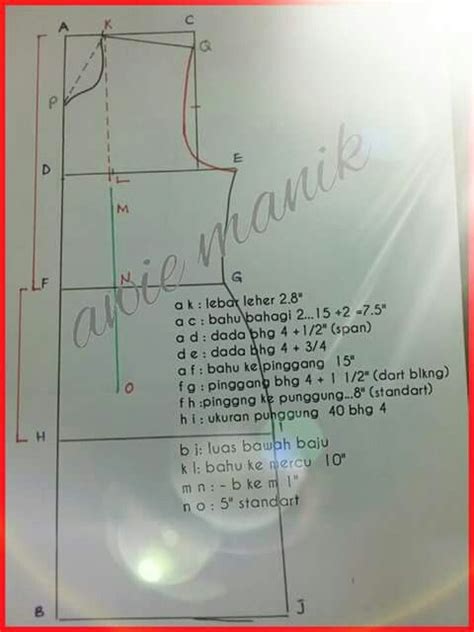 A K C
Q
P
D L E
M
F N G
O
H I
B J
awie manik
a k : lebar leher 2.8"
a c : bahu bahagi 2...15 ÷2 =7.5"
a d : dada bhg 4 +1/2" (span)
d e : dada bhg 4 + 3/4
a f : bahu ke pinggang 15"
f g : pinggang bhg 4 + 1 1/2" (dart blkng)
f h :pinggng ke punggung...8" (standart)
h i : ukuran punggung 40 bhg 4
b j: luas bawah baju
k l: bahu ke mercu 10"
m n : - b ke m 1"
n o : 5" standart